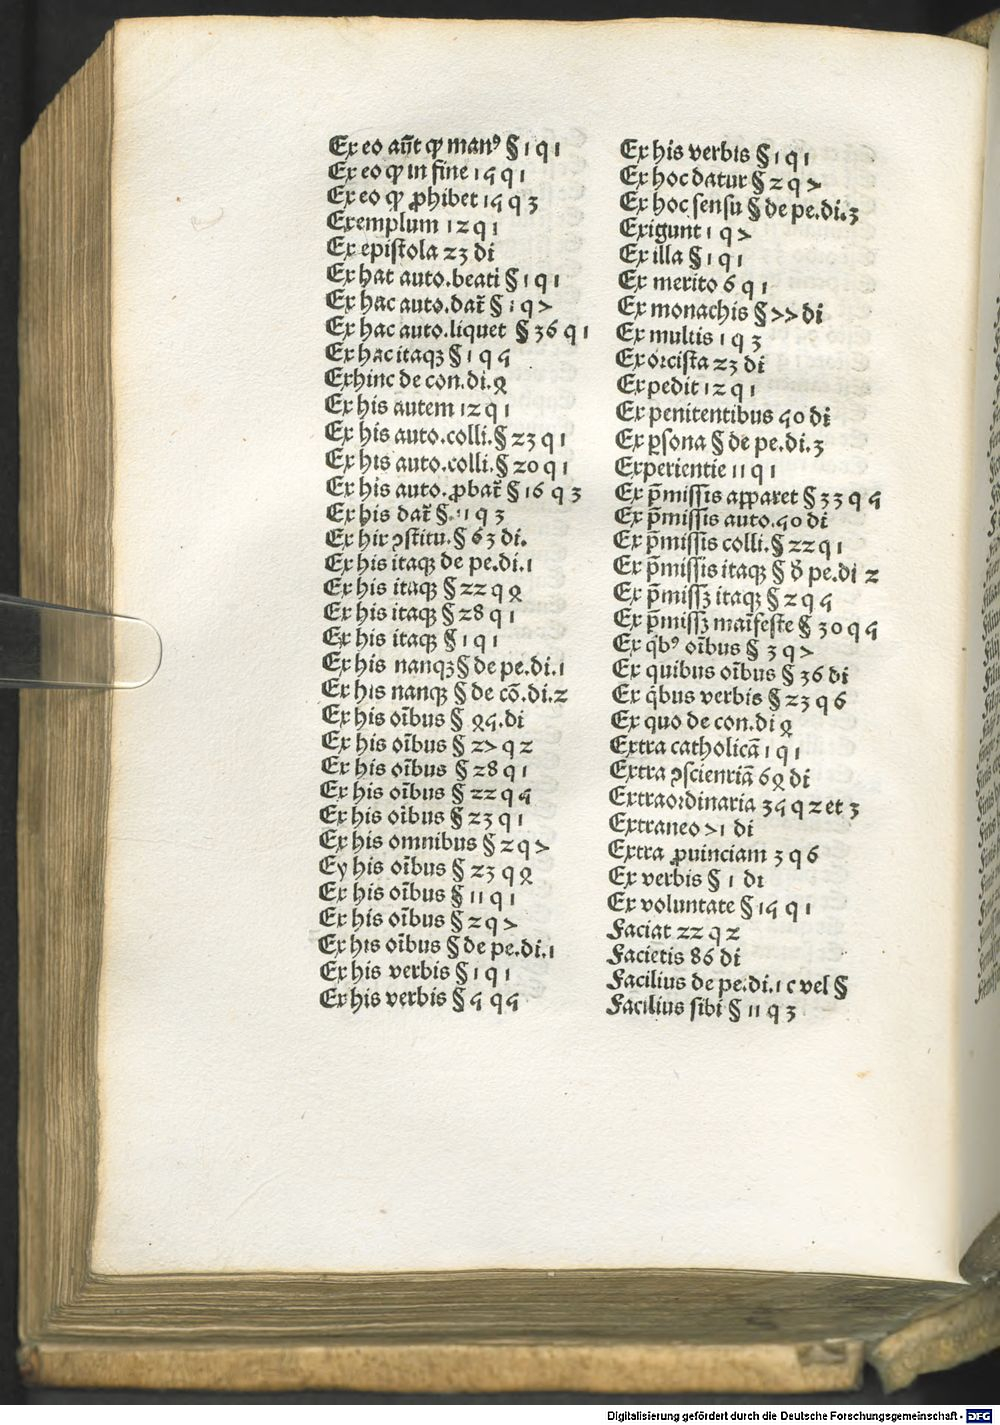 Ex eo aūt ꝙ manꝰ § 1 q 1
Ex eo ꝙ in fine 15 q 1
Ex eo ꝙ ꝓhibet 15 q 3
Exemplum 12 q 1
Ex epistola 23 di
Ex hat auto.beati § 1 q 1
Ex hac auto.dar̄ § 1 q 7
Ex hac auto.liquet § 36 q 1
Ex hac itaqꝫ § 1 q 5
Exhinc de con.di.4
Ex his autem 12 q 1
Ex his auto.colli.§ 23 q 1
Ex his auto.colli.§ 20 q 1
Ex his auto.ꝓbar̄ § 16 q 3
Ex his dar̄ § 11 q 3
Ex hir ꝯstitu.§ 63 di.
Ex his itaqꝫ de pe.di.1
Ex his itaqꝫ § 22 q 4
Ex his itaqꝫ § 28 q 1
Ex his itaqꝫ § 1 q 1
Ex his nanqꝫ § de pe.di.1
Ex his nanqꝫ § de cō.di.2
Ex his oībus § 45.di
Ex his oībus § 27 q 2
Ex his oībus § 28 q 1
Ex his oībus § 22 q 5
Ex his oībus § 23 q 1
Ex his omnibus § 2 q 7
Ey his oībus § 23 q 4
Ex his oībus § 11 q 1
Ex his oībus § 2 q 7
Ex his oībus § de pe.di.1
Ex his verbis § 1 q 1
Ex his verbis § 5 q 5
Ex his verbis § 1 q 1
Ex hoc datur § 2 q 7
Ex hoc sensu § de pe.di.3
Exigunt 1 q 7
Ex illa § 1 q 1
Ex merito 6 q 1
Ex monachis § 77 di
Ex multis 1 q 3
Exorcista 23 di
Expedit 12 q 1
Ex penitentibus 50 di
Ex ꝑsona § de pe.di.3
Experientie 11 q 1
Ex p̄missis apparet § 33 q 5
Ex p̄missis auto.50 di
Ex p̄missis colli.§ 22 q 1
Ex p̄missis itaqꝫ § d̄ pe.di 2
Ex p̄missꝫ itaqꝫ § 2 q 5
Ex p̄missꝫ maīfeste § 30 q 5
Ex qͥbꝰ oībus § 3 q 7
Ex quibus oībus § 36 di
Ex qͥbus verbis § 23 q 6
Ex quo de con.di 4
Extra catholicā 1 q 1
Extra ꝯscienriā 64 di
Extraordinaria 35 q 2 et 3
Extraneo 71 di
Extra ꝓuinciam 3 q 6
Ex verbis § 1 di
Ex voluntate § 15 q 1
Faciat 22 q 2
Facietis 86 di
Facilius de pe.di.1 c vel §
Facilius sibi § 11 q 3
Digitalisierung gefördert durch die Deutsche Forschungsgemeinschaft - DFG